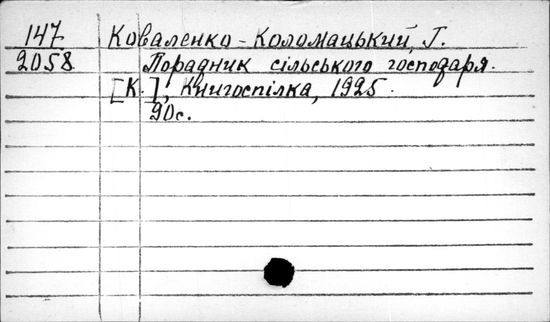 147 Коваленко-Коломацький, Г.
2058 Порадник сільського господаря.
[К.], Книгоспілка, 1925.
90с.